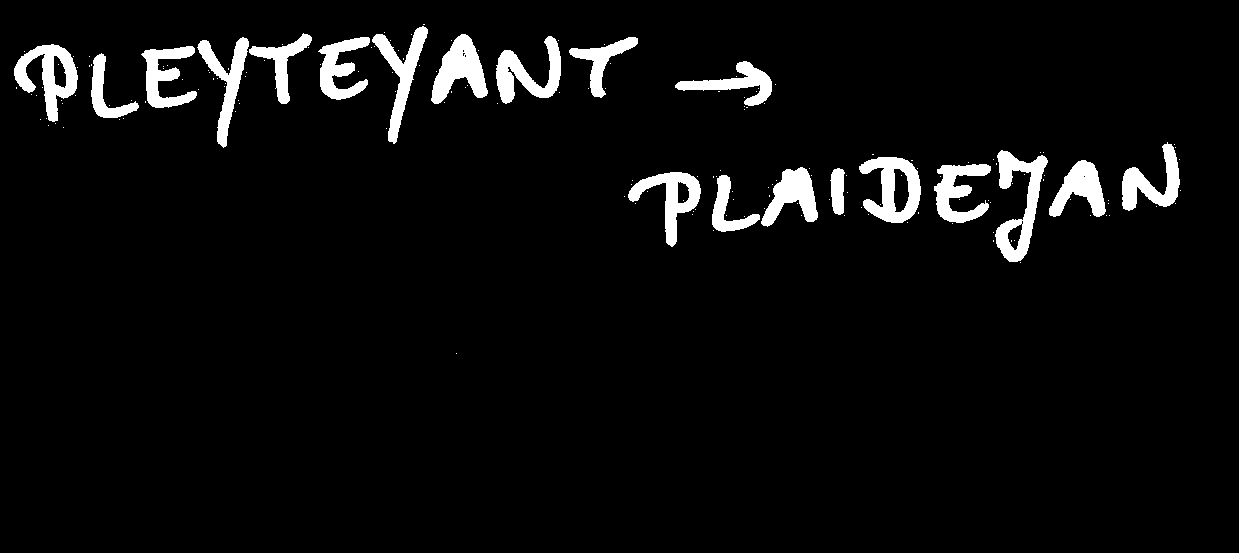 PLEYTEYANT →
PLAIDEJAN